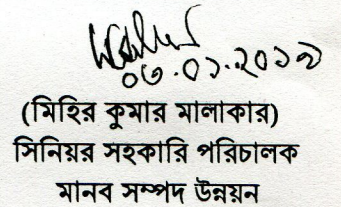 ০৩.০১.২০১৯
(মিহির কুমার মালাকার)
সিনিয়র সহকারি পরিচালক
মানব সম্পদ উন্নয়ন